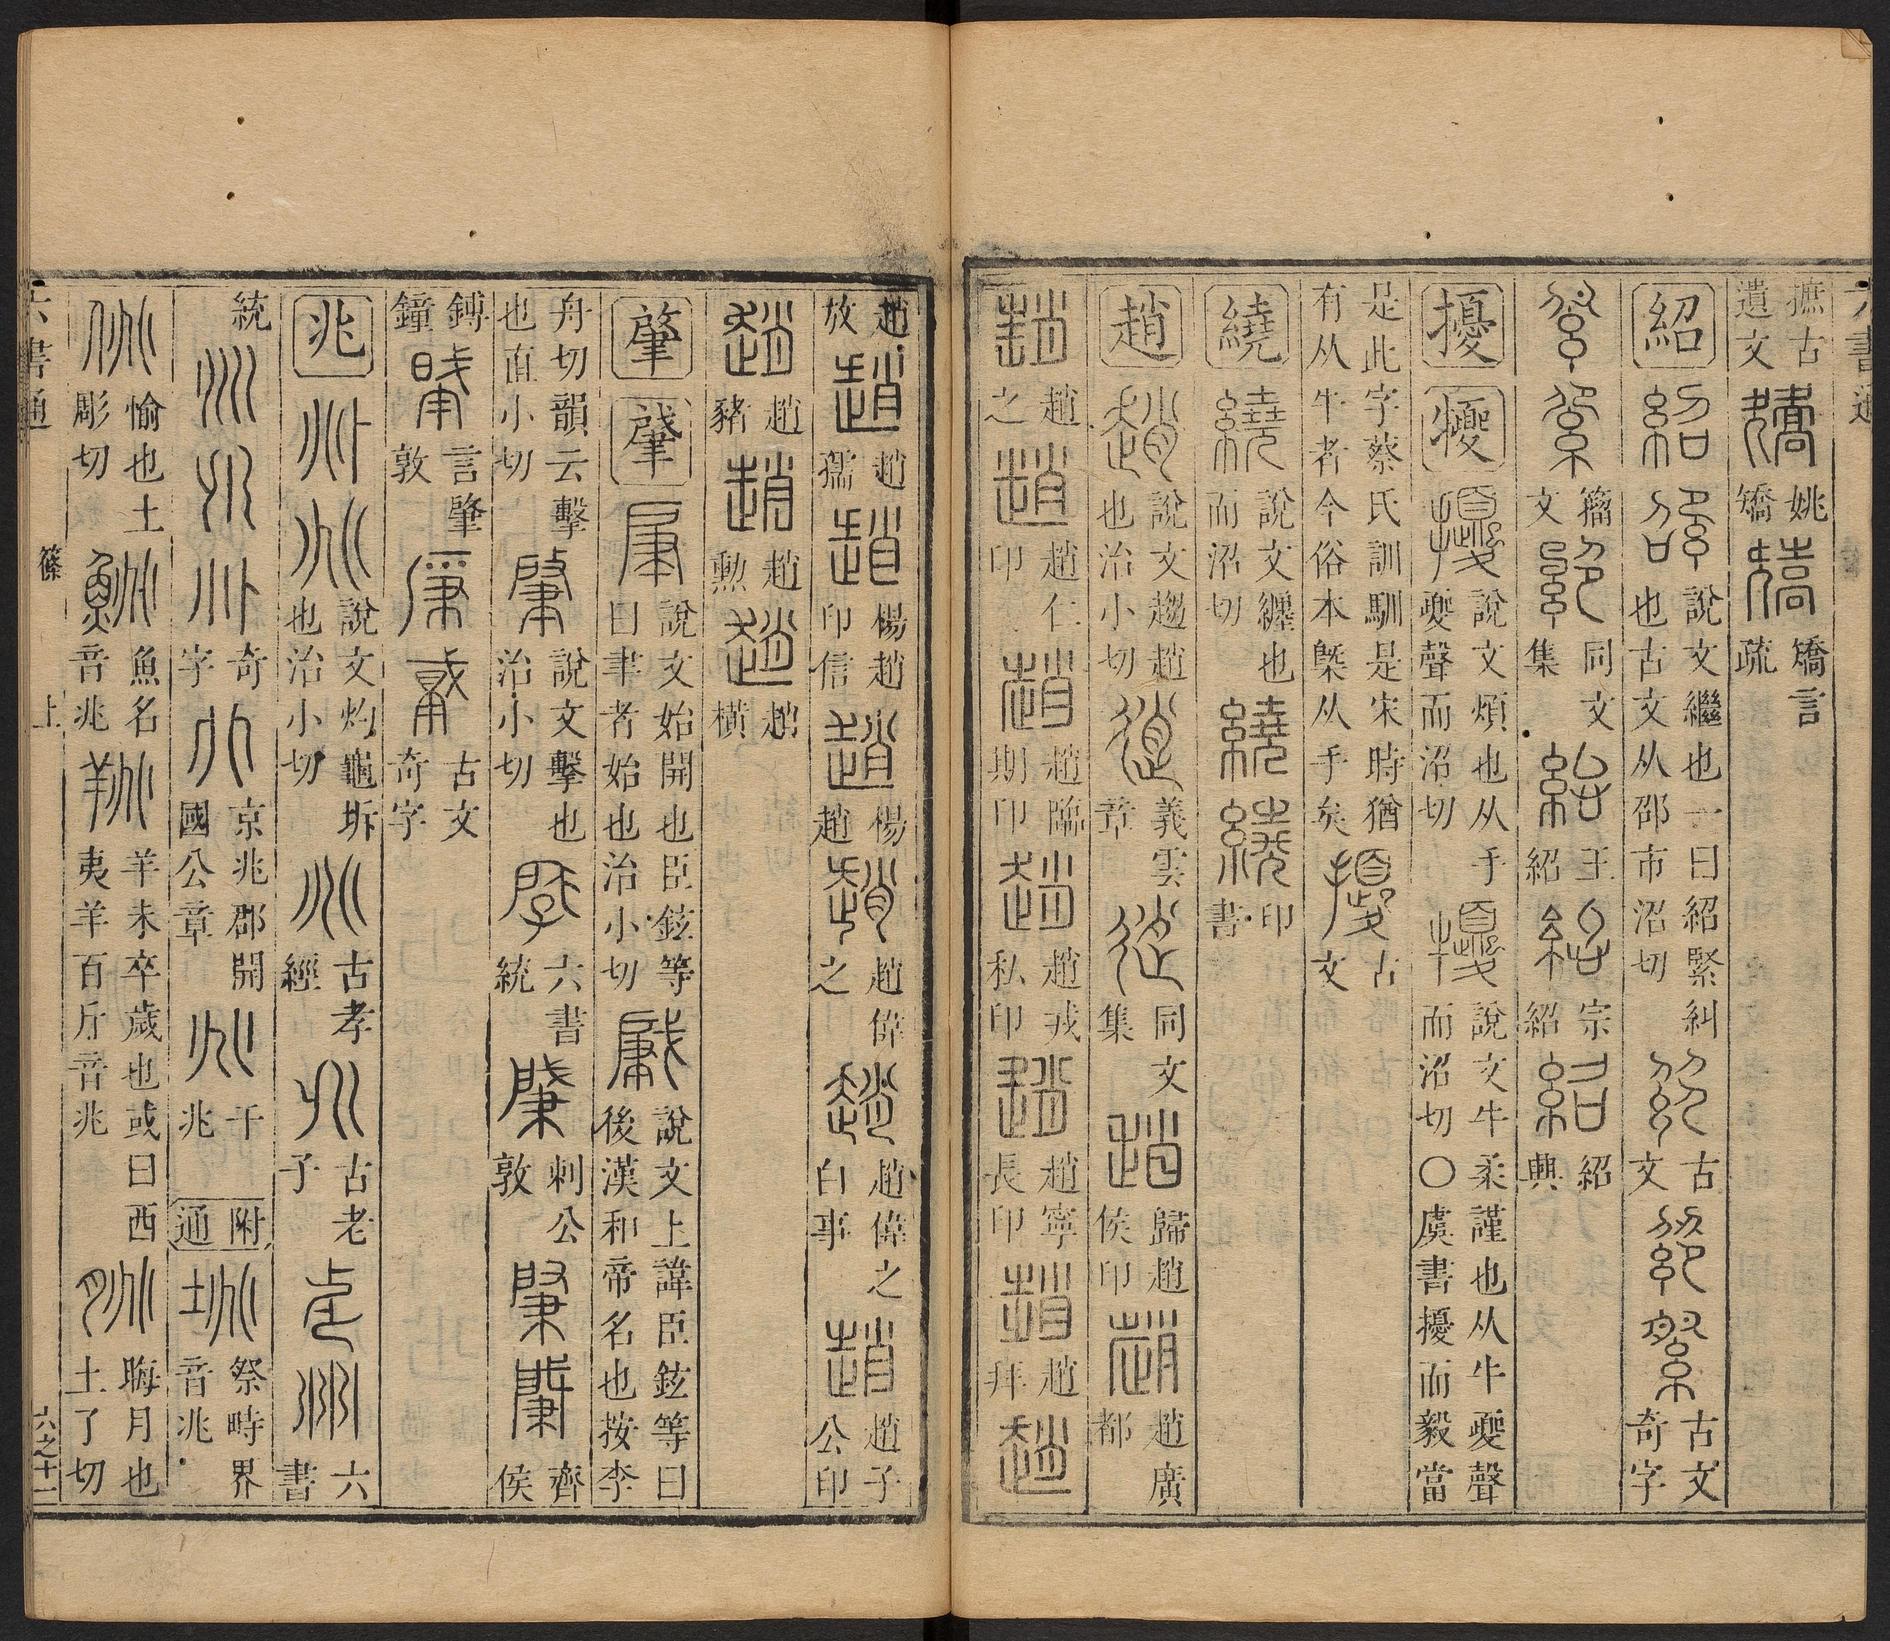 六書通
摭古遺文 姚矯 矯言疏
紹 說文繼也一曰紹緊糾也古文从邵市沼切 古文 古文奇字
籀文 同文集 王紹 宗紹 紹興
擾 㹛 說文煩也从手夒聲而沼切 說文牛柔謹也从牛夒聲而沼切〇虞書擾而毅當
是此字蔡氏訓馴是宋時猶有从牛者今俗本槩从手矣 古文
繞 說文纏也而沼切 印書
趙 說文趨趙也治小切 義雲章 同文集 歸趙侯印 趙廣都
趙之 趙仁印 趙臨期印 趙戎私印 趙寧長印 趙拜
趙放 趙孺 楊趙印信 楊趙 趙偉之 趙偉之白事 趙子公印
趙豬 趙勳 趙橫
肇 肈 說文始開也臣鉉等曰聿者始也治小切 說文上諱臣鉉等曰後漢和帝名也按李
舟切韻云擊也直小切 說文擊也治小切 六書統 刺公敦 齊侯
鎛鐘 言肇敦 古文奇字
兆 說文灼龜坼也治小切 古孝經 古老子 六書
統 奇字 京兆郡開國公章 干兆 附通 祭時界音兆
愉也土彫切 魚名音兆 羊未卒歲也或曰西夷羊百斤音兆 晦月也土了切
六書通 篠 上 六之十二